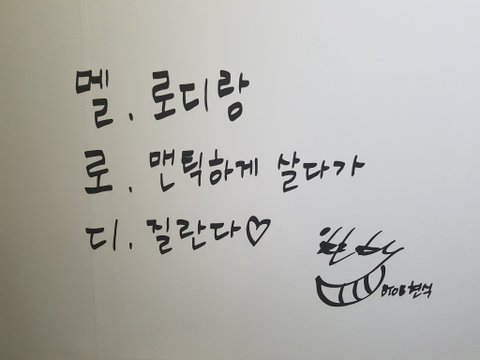 멜. 로디랑
로. 맨틱하게 살다가
디. 질란다♡
BTOB 현식